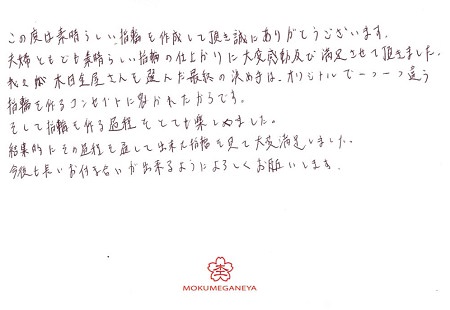 この度は素晴らしい指輪を作成して頂き誠にありがとうございます。
夫婦ともども素晴らしい指輪の仕上がりに大変感動及び満足させて頂きました。
我々が木目金屋さんを選んだ最終の決め手は、オリジナルで一つ一つ違う
指輪を作るコンセプトに惹かれたからです。
そして指輪を作る過程もとても楽しめました。
結果的にその過程を通して出来た指輪を見て大変満足しました。
今後も長いお付き合いが出来るようによろしくお願いします。
MOKUMEGANEYA